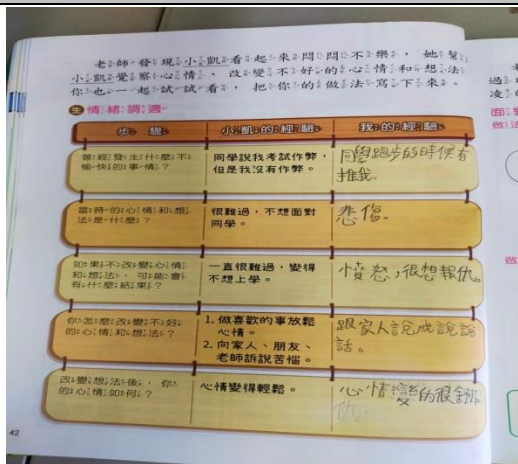 老師發現小凱看起來悶悶不樂，她幫
小凱覺察心情、改變不好的心情和想法，
你也一起試試看，把你的做法寫下來。
情緒調適
步驟
小凱的經驗
我的經驗
曾經發生什麼不
愉快的事情？
同學說我考試作弊，
但是我沒有作弊。
同學跑步的時候有
推我。
當時的心情和想
法是什麼？
很難過，不想面對
同學。
悲傷。
如果不改變心情
和想法，可能會
有什麼結果？
一直很難過，變得
不想上學。
憤怒，很想報仇。
你怎麼改變不好
的心情和想法？
1. 做喜歡的事放鬆
心情。
2. 向家人、朋友、
老師訴說苦惱。
跟家人說
話。
改變想法後，你
的心情如何？
心情變得輕鬆。
心情變的很
42